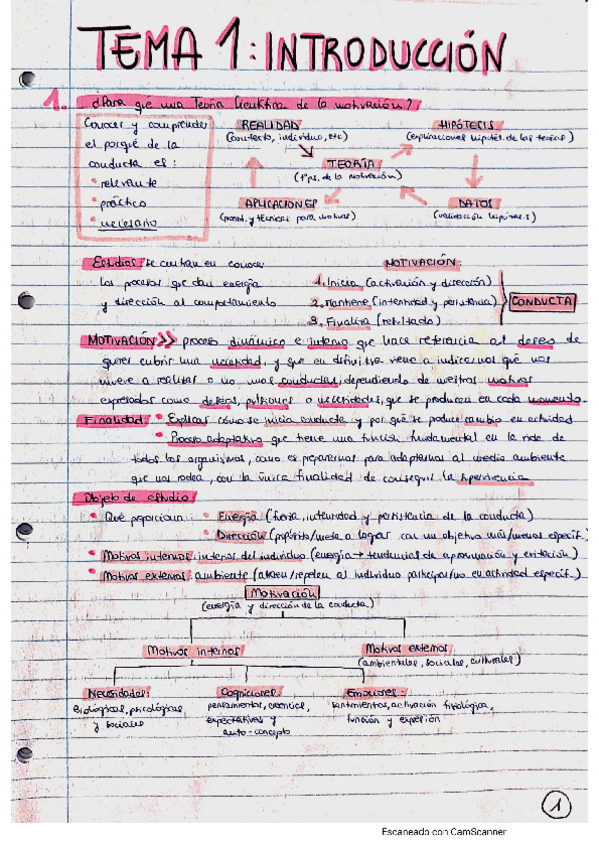 TEMA 1: INTRODUCCIÓN
1. ¿Para qué una Teoría Científica de la motivación?
Conocer y comprender
el porqué de la
conducta es:
• relevante
• práctico
• necesario
REALIDAD
(contexto, individuo, etc)
HIPÓTESIS
(explicaciones hipotét. de las teorías)
TEORÍA
(1ºps. de la motivación)
APLICACIONES
(proced. y técnicas para motivar)
DATOS
(validación hipótesis)
Estudios: se centran en conocer
los procesos que dan energía
y dirección al comportamiento
MOTIVACIÓN:
1. Inicia (activación y dirección)
2. Mantiene (intensidad y persistencia)
3. Finaliza (resultado)
CONDUCTA
MOTIVACIÓN >> proceso dinámico e interno que hace referencia al deseo de
querer cubrir una necesidad, y que en definitiva viene a indicarnos qué nos
mueve a realizar o no unas conductas, dependiendo de nuestros motivos
expresados como deseos, pulsiones o necesidades, que se producen en cada momento.
Finalidad • Explicar cómo se inicia conducta y por qué se produce cambio en actividad
• Proceso adaptativo que tiene una función fundamental en la vida de
todos los organismos, como es prepararnos para adaptarnos al medio ambiente
que nos rodea, con la única finalidad de conseguir la supervivencia
Objeto de estudio
• Qué proporciona: • Energía (fuerza, intensidad y persistencia de la conducta)
• Dirección (propósito/meta a lograr con un objetivo más/menos específ.)
• Motivos internos: interos del individuo (energía → tendencias de aproximación y evitación)
• Motivos externos: ambiente (atraen/repelen al individuo participar/no en actividad específ.)
Motivación
(energía y dirección de la conducta)
Motivos internos
Motivos externos
(ambientales, sociales, culturales)
Necesidades:
Biológicas, psicológicas
y sociales
Cogniciones:
pensamientos, creencias,
expectativas y
auto-concepto
Emociones:
sentimientos, activación fisiológica,
función y expresión
1
Escaneado con CamScanner